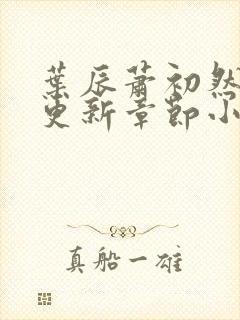 葉辰蕭初然
更新章節小
真船一雄